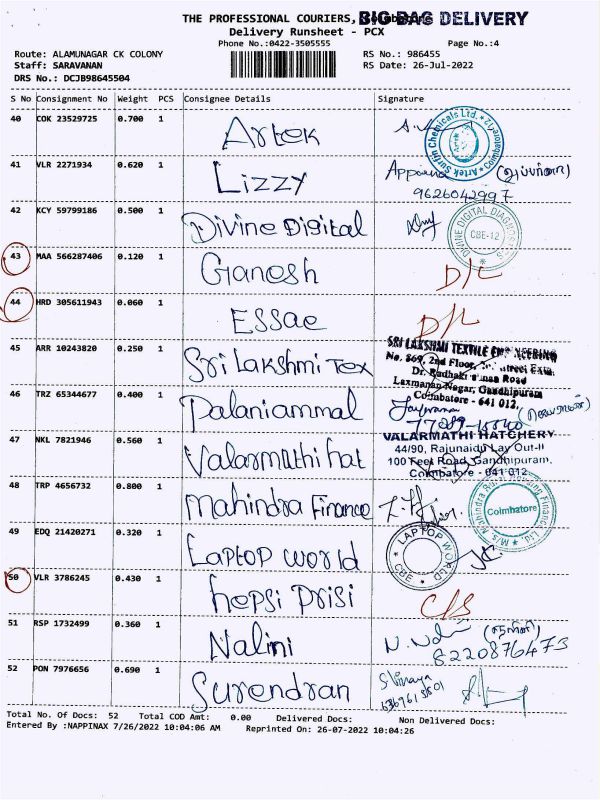 THE PROFESSIONAL COURIERS, Coimbatore
BIG BAG DELIVERY
Delivery Runsheet - PCX
Phone No.:0422-3505555 Page No.:4
Route: ALAMUNAGAR CK COLONY RS No.: 986455
Staff: SARAVANAN RS Date: 26-Jul-2022
DRS No.: DCJB98645504
S No Consignment No Weight PCS Consignee Details Signature
40 COK 23529725 0.700 1 Artek
Artek Surfin Chemicals Ltd. Coimbatore-12
41 VLR 2271934 0.620 1 Lizzy
9626042997
42 KCY 59799186 0.500 1 Divine Digital
DIVINE DIGITAL DIAGNOSTICS CBE-12
43 MAA 566287406 0.120 1 Ganesh D/L
44 HRD 305611943 0.060 1 Essae D/L
45 ARR 10243820 0.250 1 Sri Lakshmi Tex
SRI LAKSHMI TEXTILE ENGINEERING
No. 869, 2nd Floor, Street Extn.
Dr. Radhakrishnan Road
Laxmanan Nagar, Gandhipuram
Coimbatore - 641 012.
46 TRZ 65344677 0.400 1 Palaniammal
47 NKL 7821946 0.560 1 Valarmathi hat
VALARMATHI HATCHERY
44/90, Rajunaidu Lay Out-II
100 Feet Road, Gandhipuram,
Coimbatore - 641 012.
48 TRP 4656732 0.800 1 Mahindra Finance
Coimbatore
49 EDQ 21420271 0.320 1 Laptop world
LAPTOP WORLD CBE
50 VLR 3786245 0.430 1 hepsi prisi C/S
51 RSP 1732499 0.360 1 Nalini
8220876473
52 PON 7976656 0.690 1 Surendran
Total No. Of Docs: 52 Total COD Amt: 0.00 Delivered Docs: Non Delivered Docs:
Entered By :NAPPINAX 7/26/2022 10:04:06 AM Reprinted On: 26-07-2022 10:04:26